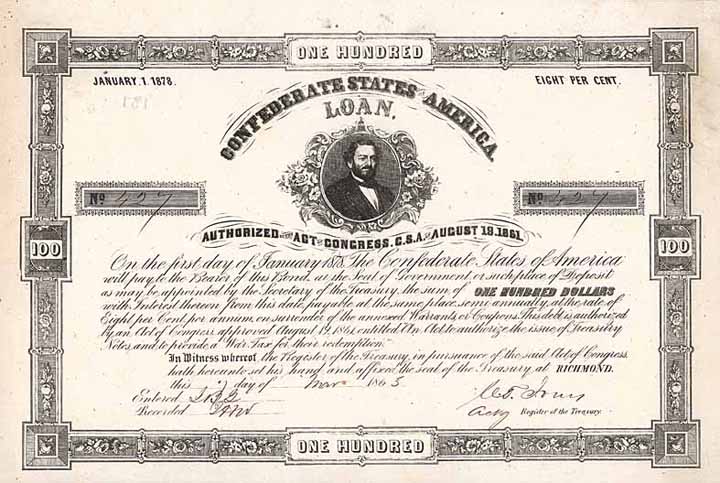 ONE HUNDRED
JANUARY. 1 1878. EIGHT PER CENT.
CONFEDERATE STATES OF AMERICA.
LOAN.
No 427 No 427
AUTHORIZED BY THE ACT OF CONGRESS, C.S.A. OF AUGUST 19.1861.
100 100
On the first day of January 1878, The Confederate States of America
will pay to the Bearer of this Bond, at the Seat of Government, or such place of Deposit
as may be appointed by the Secretary of the Treasury, the sum of ONE HUNDRED DOLLARS
with Interest thereon from this date, payable at the same place, semi annually, at the rate of
Eight per Cent. per annum, on surrender of the annexed Warrants, or Coupons. This debt is authorized
by an Act of Congress, approved August 19, 1861, entitled "An Act to authorize the issue of Treasury
Notes, and to provide a War Tax for their redemption."
In Witness whereof, the Register of the Treasury, in pursuance of the said Act of Congress,
hath hereunto set his hand, and affixed the seal of the Treasury, at RICHMOND,
this 2 day of Mar 1863
Entered
Recorded Actg Register of the Treasury.
ONE HUNDRED